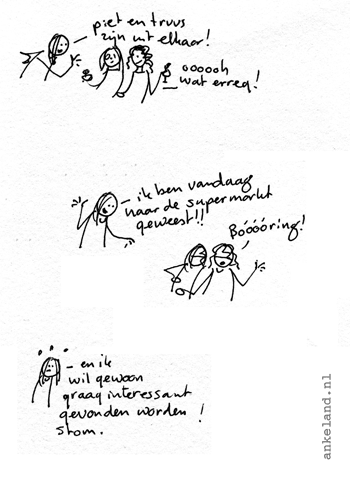 piet en truus
zijn uit elkaar!
ooooh
wat erreg!
ik ben vandaag
naar de supermarkt
geweest!!
Bóóóóring!
en ik
wil gewoon
graag interessant
gevonden worden !
stom.
ankeland.nl